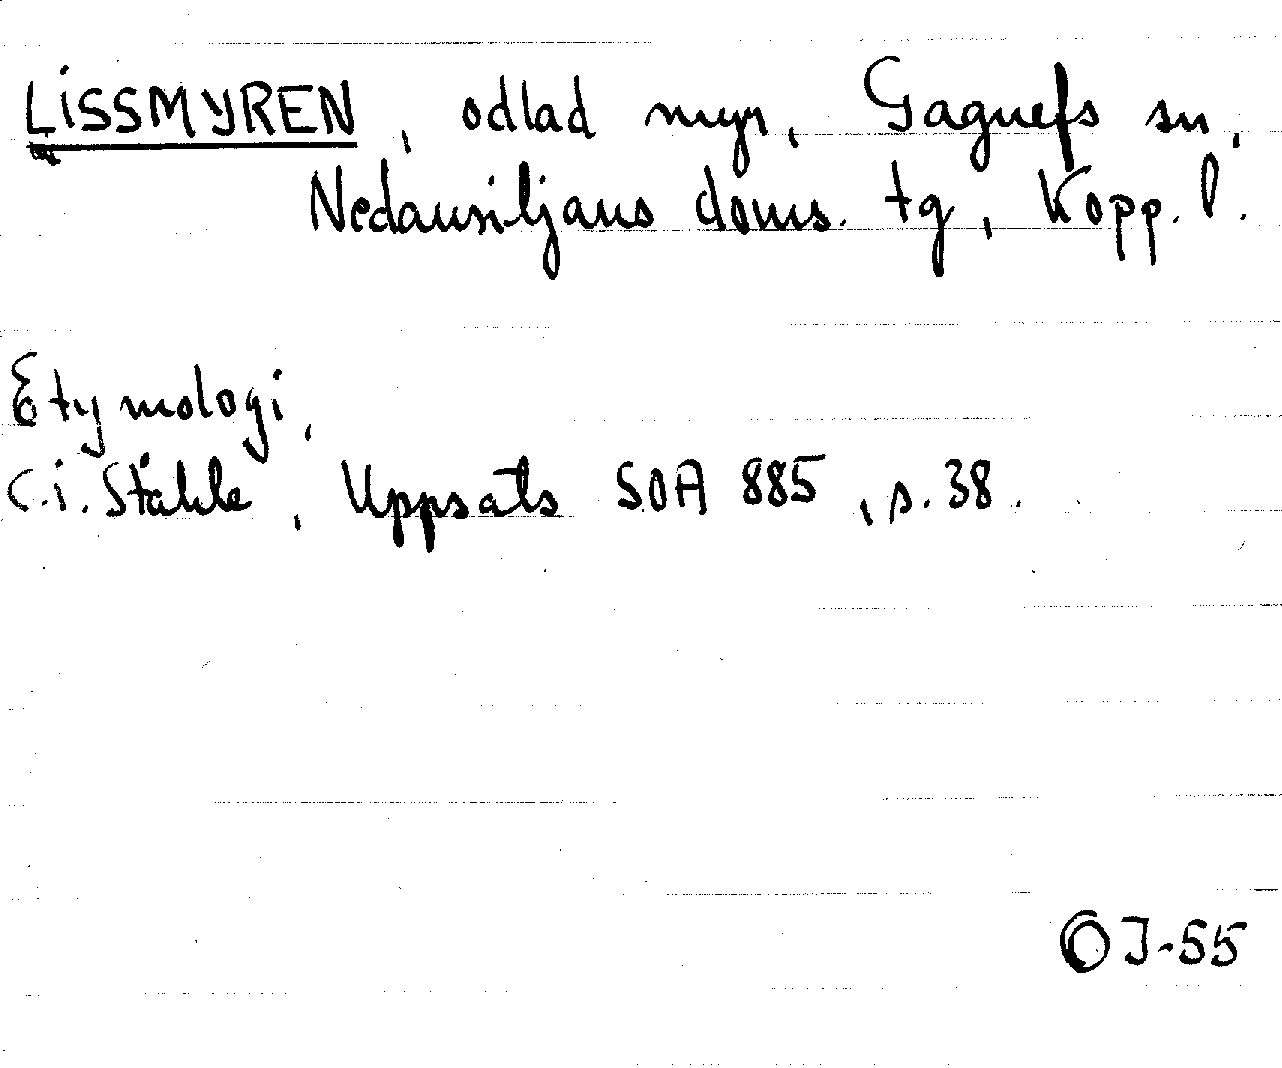 LISSMYREN, odlad myr, Gagnefs sn,
Nedansiljans doms. tg, Kopp. l.
Etymologi,
C.i. Ståhle, Uppsats SOA 885, s. 38.
OJ-55